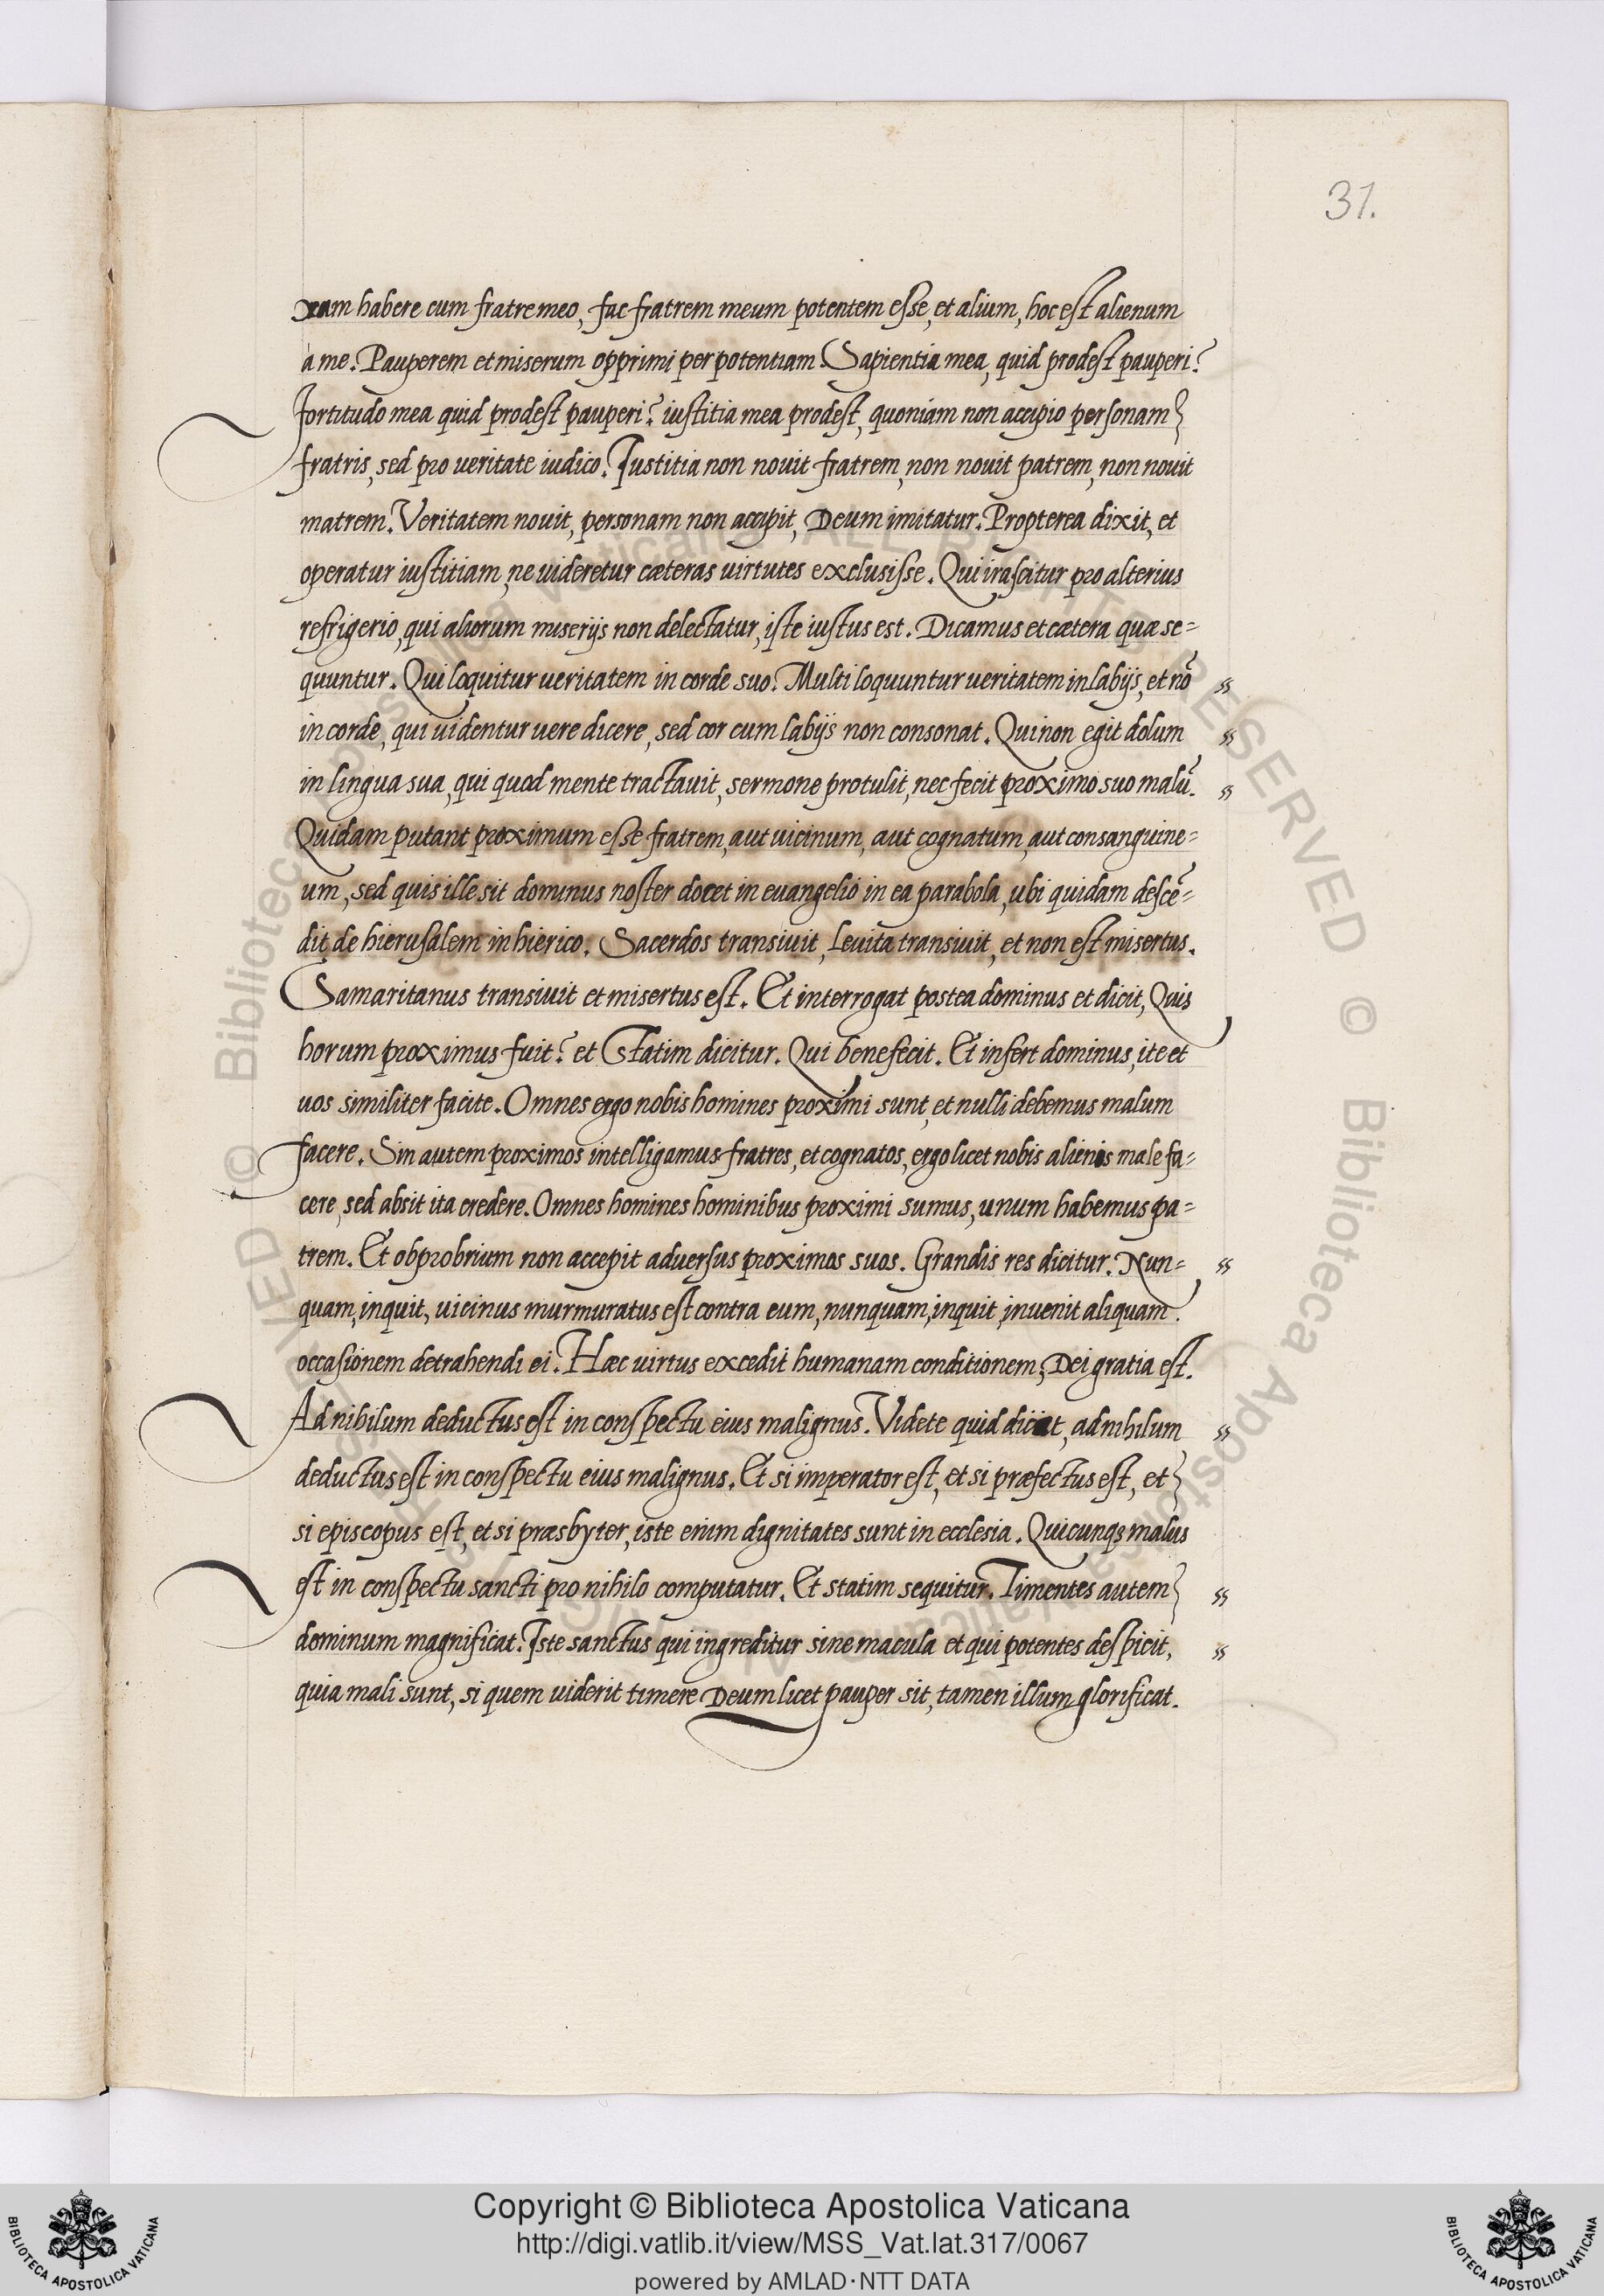 31.
xam habere cum fratre meo, fac fratrem meum potentem esse, et alium, hoc est alienum
a me. Pauperem et miserum opprimi per potentiam Sapientia mea, quid prodest pauperi?
fortitudo mea quid prodest pauperi? iustitia mea prodest, quoniam non accipio personam
fratris, sed pro ueritate iudico. Iustitia non nouit fratrem, non nouit patrem, non nouit
matrem. Veritatem nouit, personam non accipit, Deum imitatur. Propterea dixit, et
operatur iustitiam, ne uideretur cæteras uirtutes exclusisse. Qui irascitur pro alterius
refrigerio, qui aliorum miserijs non delectatur, iste iustus est. Dicamus et cætera quæ se=
quuntur. Qui loquitur ueritatem in corde suo. Multi loquuntur ueritatem in labijs, et nõ
in corde, qui uidentur uere dicere, sed cor cum labijs non consonat. Qui non egit dolum
in lingua sua, qui quod mente tractauit, sermone protulit, nec fecit proximo suo malũ.
Quidam putant proximum esse fratrem, aut uicinum, aut cognatum, aut consanguine=
um, sed quis ille sit dominus noster docet in euangelio in ea parabola, ubi quidam descẽ=
dit de hierusalem in hierico. Sacerdos transiuit, Leuita transiuit, et non est misertus.
Samaritanus transiuit et misertus est. Et interrogat postea dominus et dicit, Quis
horum proximus fuit? et Statim dicitur. Qui benefecit. Et infert dominus, ite et
uos similiter facite. Omnes ergo nobis homines proximi sunt, et nulli debemus malum
facere. Sin autem proximos intelligamus fratres, et cognatos, ergo licet nobis alienis male fa=
cere, sed absit ita credere. Omnes homines hominibus proximi sumus, unum habemus pa=
trem. Et obprobrium non accepit aduersus proximos suos. Grandis res dicitur. Nun=
quam, inquit, uicinus murmuratus est contra eum, nunquam, inquit, inuenit aliquam
occasionem detrahendi ei. Hæc uirtus excedit humanam conditionem, Dei gratia est.
Ad nihilum deductus est in conspectu eius malignus. Videte quid dicat, ad nihilum
deductus est in conspectu eius malignus. Et si imperator est, et si præfectus est, et
si episcopus est, et si præsbyter, iste enim dignitates sunt in ecclesia. Quicunqꝫ malus
est in conspectu sancti pro nihilo computatur. Et statim sequitur. Timentes autem
dominum magnificat. Iste sanctus qui ingreditur sine macula et qui potentes despicit,
quia mali sunt, si quem uiderit timere Deum licet pauper sit, tamen illum glorificat.
Copyright © Biblioteca Apostolica Vaticana
http://digi.vatlib.it/view/MSS_Vat.lat.317/0067
powered by AMLAD·NTT DATA
BIBLIOTECA APOSTOLICA VATICANA
BIBLIOTECA APOSTOLICA VATICANA